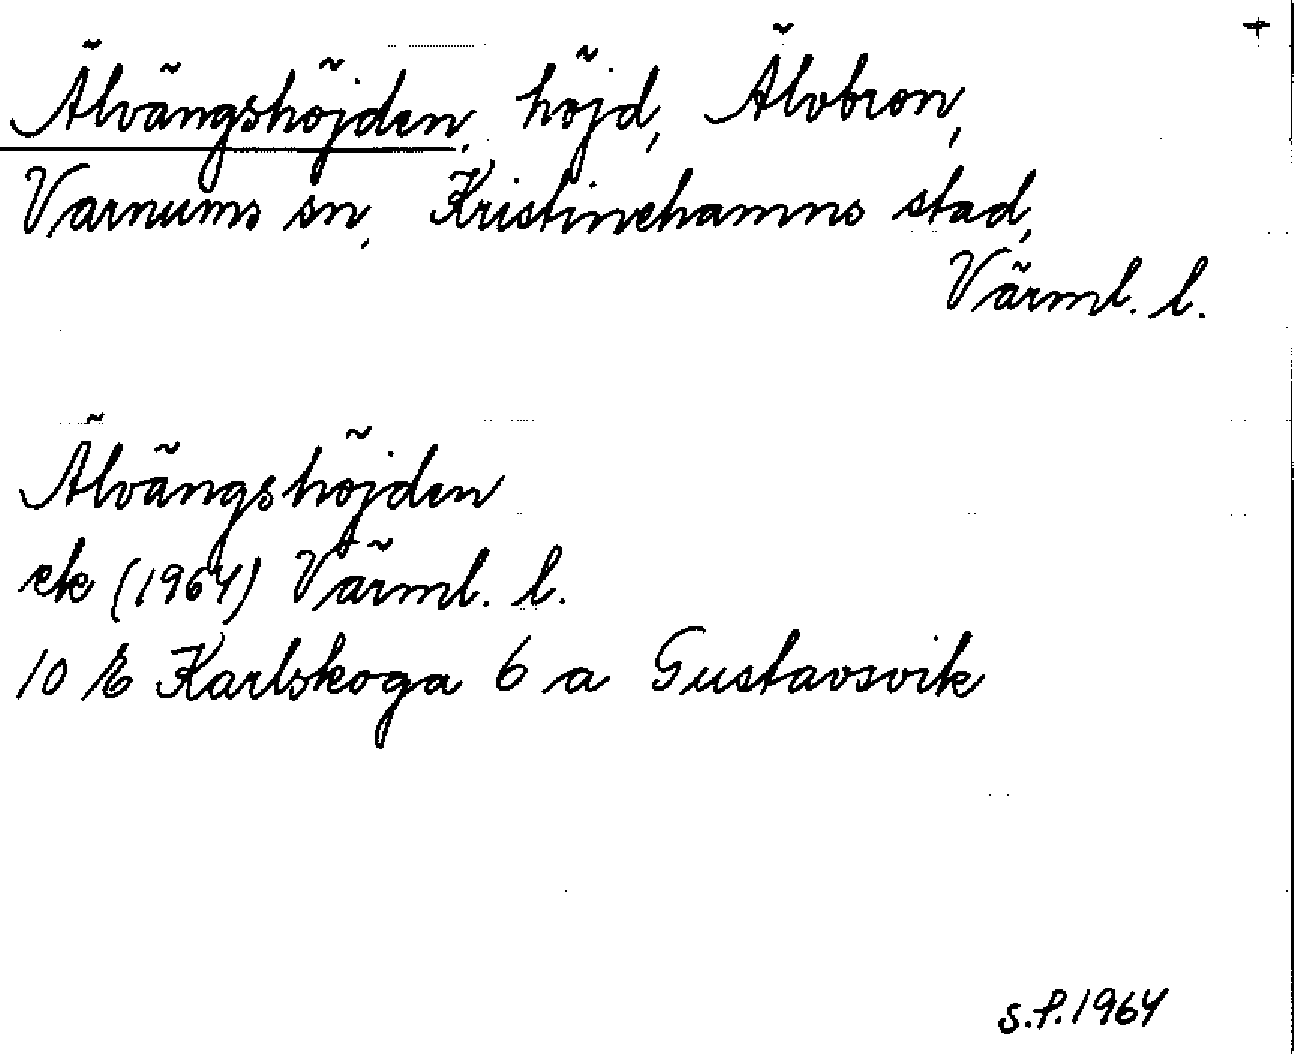 +
Älvängshöjden, höjd, Älvbron,
Varnums sn, Kristinehamns stad,
Värml. l.
Älvängshöjden
ek (1964) Värml. l.
10 E Karlskoga 6 a Gustavsvik
s.f. 1964